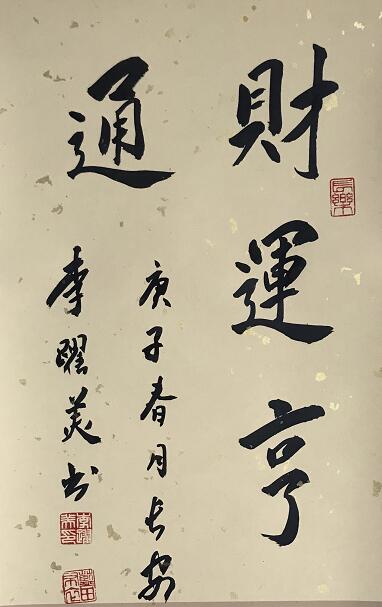 財運亨
通
庚子春月長安
李耀美書